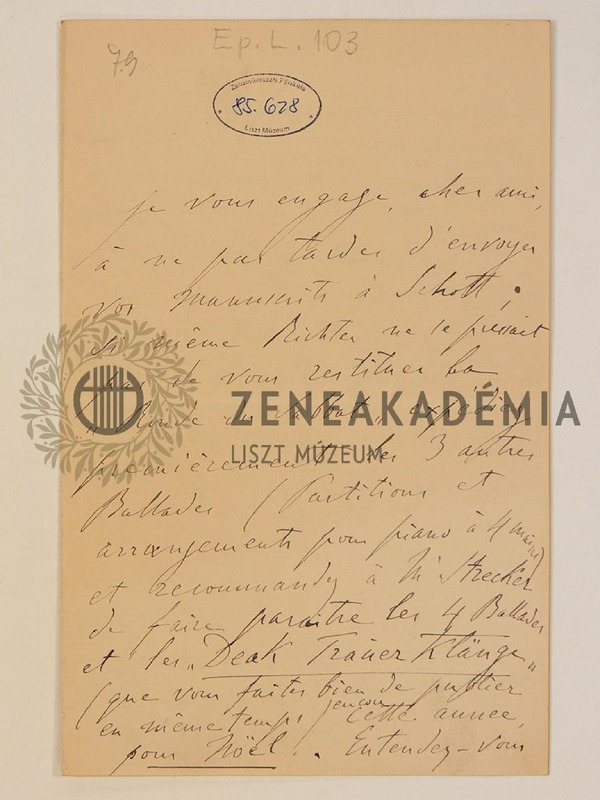 79
Ep. L. 103
Zeneművészeti Főiskola
85.628
Liszt Múzeum
je vous engage, cher ami,
à ne pas tarder d'envoyer
vos manuscrits à Schott.
Si même Richter ne se pressait
pas de vous restituer la
„Ronde du Sabbat„ expédiez
premièrement les 3 autres
Ballades (Partitions et
arrangements pour piano à 4 mains)
et recommandez à Mr Strecker
de faire paraître les 4 Ballades
et les „Deak Trauer Klänge„
(que vous faites bien de publier
en même temps) encore cette année,
pour Nöel. Entendez-vous
ZENEAKADÉMIA
LISZT MÚZEUM